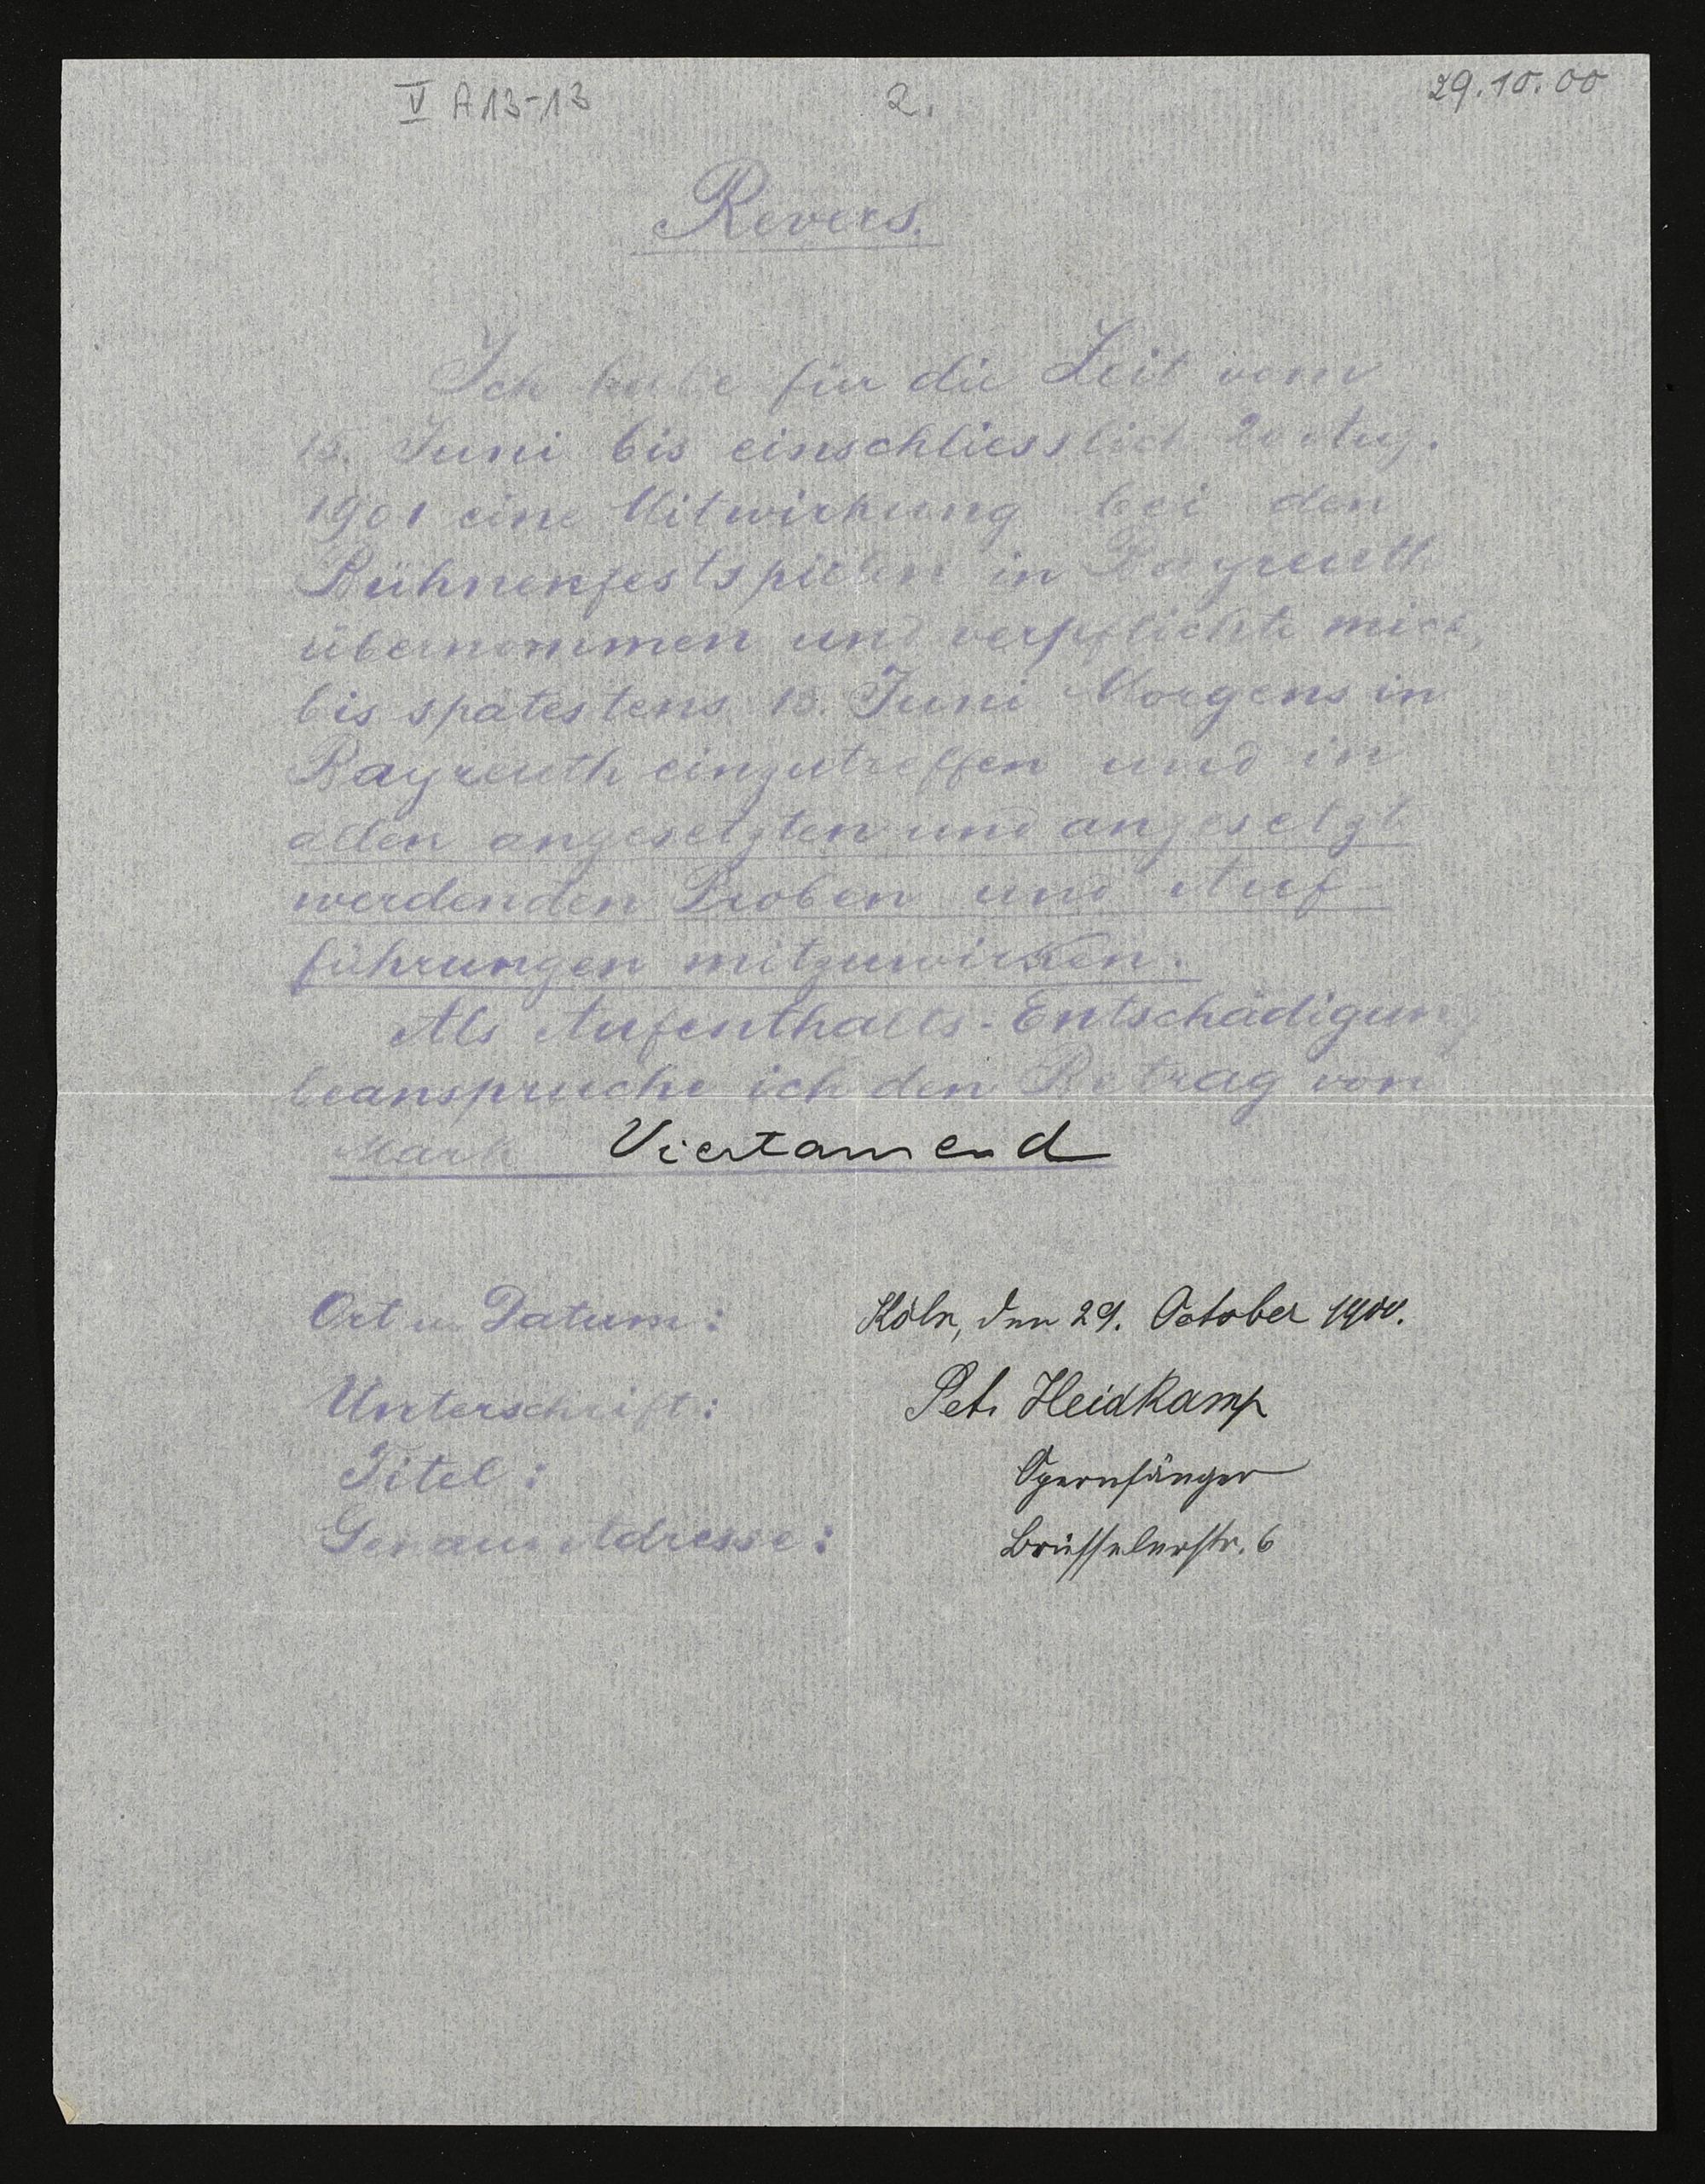 V A13-13 2. 29.10.00
Revers.
Ich habe für die Zeit vom
15. Juni bis einschliesslich 20 Aug.
1901 eine Mitwirkung bei den
Bühnenfestspielen in Bayreuth
übernommen und verpflichte mich,
bis spätestens Juni Morgens in
Bayreuth einzutreffen und in
allen angesetzten und angesetzt
werdenden Proben und Auf-
führungen mitzuwirken.
Als Aufenthalts-Entschädigung
beanspruche ich den Betrag von
Mark Viertausend
Ort u. Datum: Köln, den 29. October 1900.
Unterschrift: Pet. Heidkamp
Titel: Opernsänger
Genaue Adresse: Brüsselerstr. 6